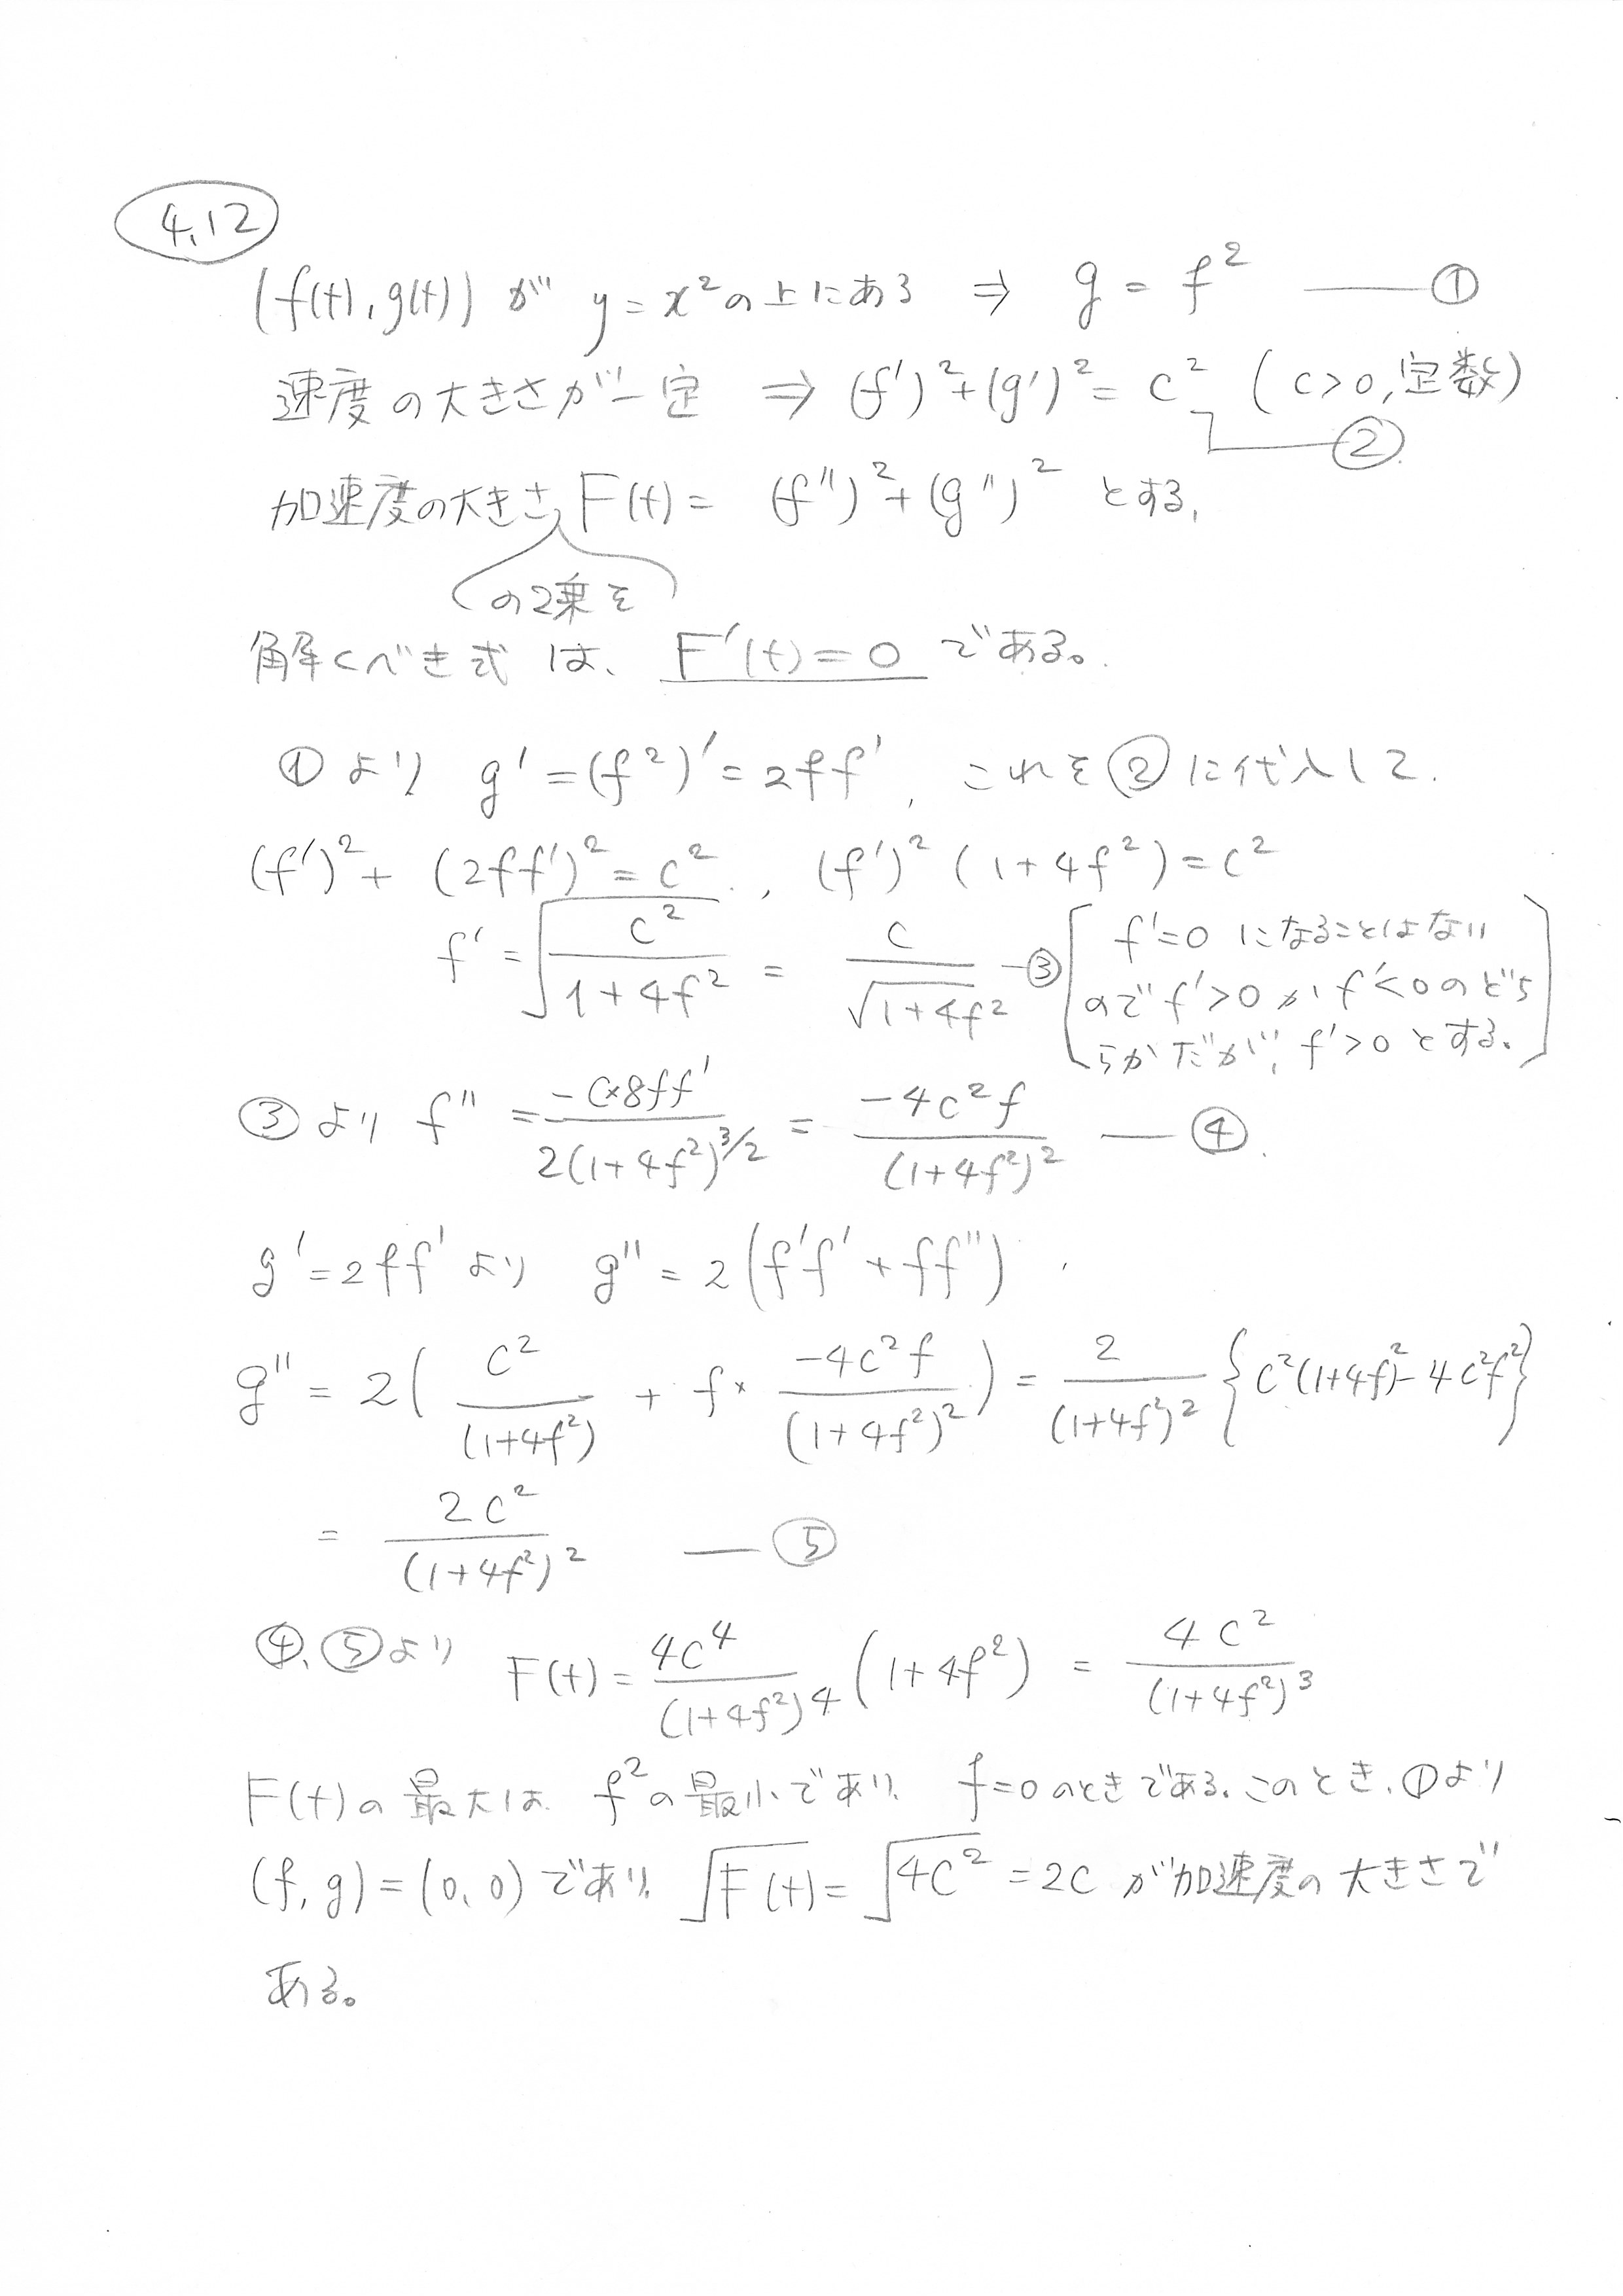 4.12
(f(t), g(t)) が y = x² の上にある ⇒ g = f² ―― ①
速度の大きさが一定 ⇒ (f')² + (g')² = c² (c>0, 定数)
②
加速度の大きさ F(t) = (f'')² + (g'')² とする,
の2乗を
解くべき式は、 F'(t) = 0 である。
①より g' = (f²)' = 2ff', これを②に代入して.
(f')² + (2ff')² = c² , (f')² (1+4f²) = c²
f' = √(c²/(1+4f²)) = c/√(1+4f²) ―③ [f'=0 になることはない
ので f'>0 か f'<0 のどち
らかだが, f'>0 とする。]
③より f'' = -c×8ff' / 2(1+4f²)^{3/2} = -4c²f / (1+4f²)² ―― ④
g' = 2ff' より g'' = 2(f'f' + ff'')
g'' = 2( c²/(1+4f²) + f× -4c²f/(1+4f²)² ) = 2/(1+4f²)² {c²(1+4f)² - 4c²f²}
= 2c²/(1+4f²)² ―― ⑤
④、⑤より F(t) = 4c⁴/(1+4f²)⁴ (1+4f²) = 4c²/(1+4f²)³
F(t)の最大は f²の最小であり、 f=0 のときである。このとき、①より
(f, g) = (0, 0) であり、 √F(t) = √4c² = 2c が加速度の大きさで
ある。